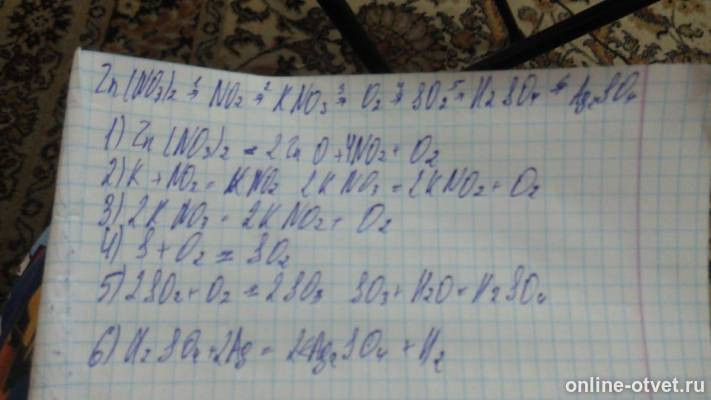 Zn(NO3)2 1→ NO2 2→ KNO3 3→ O2 4→ SO2 5→ H2SO4 6→ Ag2SO4
1) Zn(NO3)2 = 2ZnO + 4NO2 + O2
2) K + NO2 = KNO2 2KNO3 = 2KNO2 + O2
3) 2KNO3 = 2KNO2 + O2
4) S + O2 = SO2
5) 2SO2 + O2 = 2SO3 SO3 + H2O = H2SO4
6) H2SO4 + 2Ag = 2Ag2SO4 + H2
online-otvet.ru